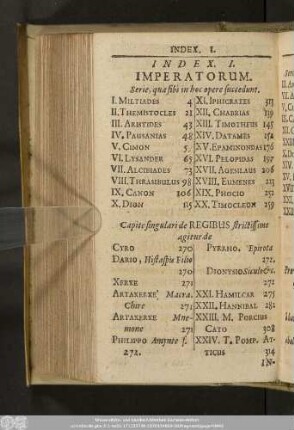 INDEX. I.
INDEX. I.
IMPERATORUM.
Serie, qua sibi in hoc opere succedunt.
I. MILTIADES 4
II. THEMISTOCLES 21
III. ARISTIDES 43
IV. PAUSANIAS 48
V. CIMON
VI. LYSANDER 65
VII. ALCIBIADES 73
VIII. THRASIBULUS 98
IX. CONON 106
X. DION 115
XI. IPHICRATES
XII. CHABRIAS
XIII. TIMOTHEUS 145
XIV. DATAMES 152
XV. EPAMINONDAS 176
XVI. PELOPIDAS 197
XVII. AGESILAUS 206
XVIII. EUMENES
XIX. PHOCIO 252
XX. TIMOCLEON 259
Capite singulari de REGIBUS strictissime
agitur de
CYRO 270
DARIO, Histaspis Filio
270
XERXE 271
ARTAXERXE Macro-
Chire 271
ARTAXERXE Mne-
mone 271
PHILIPPO Amyntæ f.
272.
PYRRHO, Epirota
272
DIONYSIO Siculo &c.
272
XXI. HAMILCAR 275
XXII. HANNIBAL 281
XXIII. M. PORCIUS
CATO 308
XXIV. T. POMP. AT-
TICUS 314
IN-